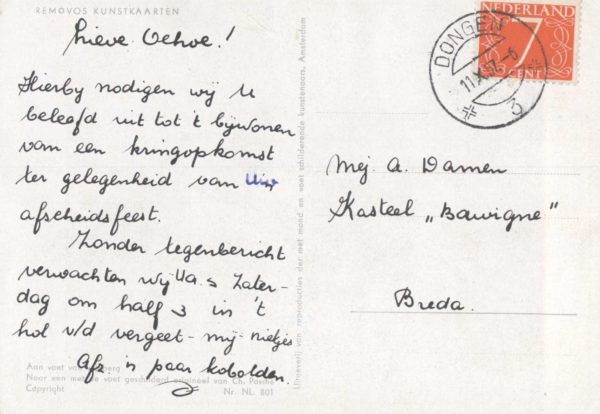 REMOVOS KUNSTKAARTEN
Lieve Oehoe!
Hierby nodigen wij U
beleefd uit tot 't bijwonen
van een kringopkomst
ter gelegenheid van Uw
afscheidsfeest.
Zonder tegenbericht
verwachten wij U a.s Zater-
dag om half 3 in 't
hol v/d vergeet-mij-nietjes
Afz. 'n paar kobolden.
Aan voet van
Naar een met de voet geschilderd origineel van Ch. Pasche
Copyright Nr. NL. 801
Uitgeverij van reproducties der met mond en voet schilderende kunstenaars, Amsterdam
NEDERLAND
7
CENT
DONGEN
3
Mej A. Damen
Kasteel „Bouvigne"
Breda.